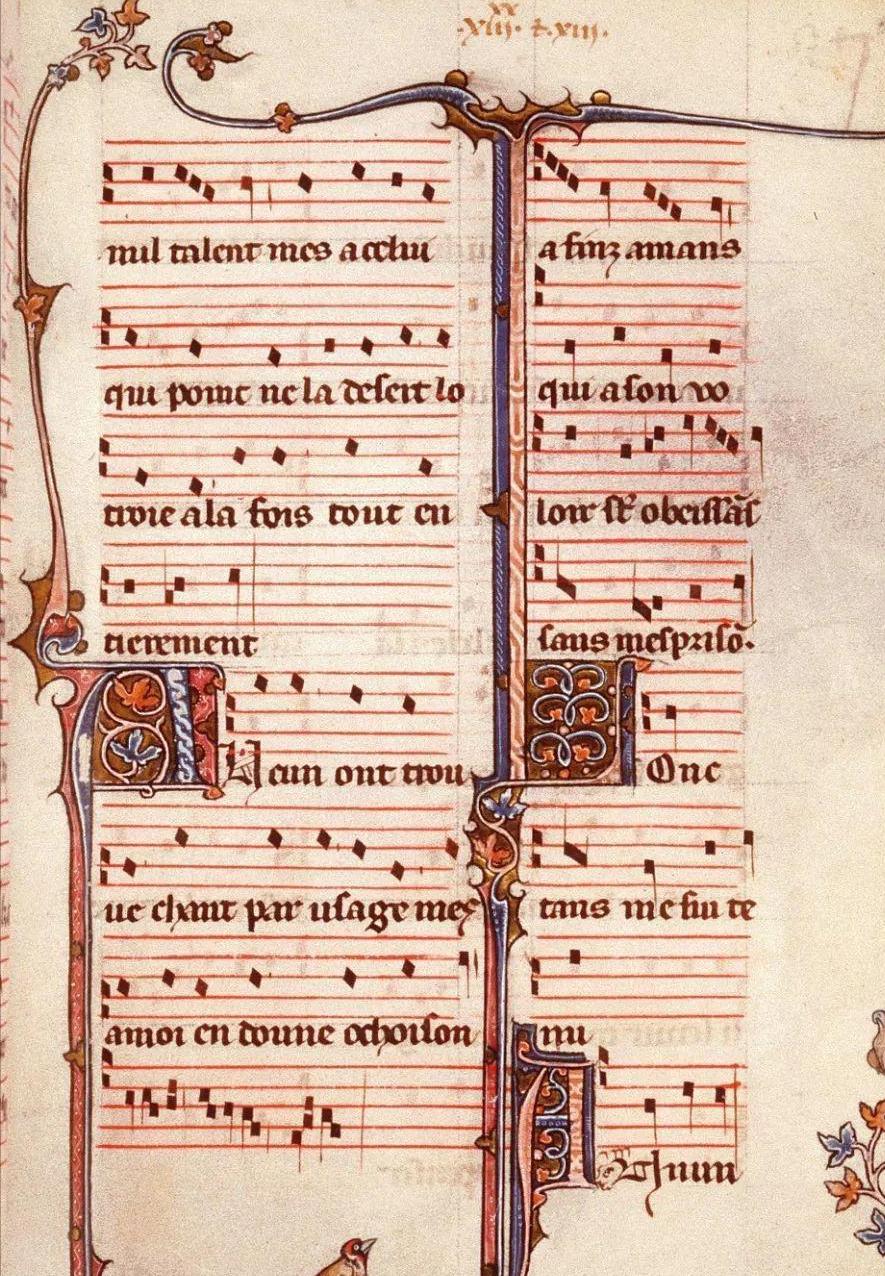 xx
.xiii. & .xiii.
nul talent mes a celui
qui point ne la desert lo
troie a la fois tout en
tierement
A cun ont trou
ue chant par usage mes
amoi en doune ochoison
a finz amans
qui a son vo
loir st obeissãs
sans mesprisõ.
L Onc
tans me sui te
nu
A Nnun